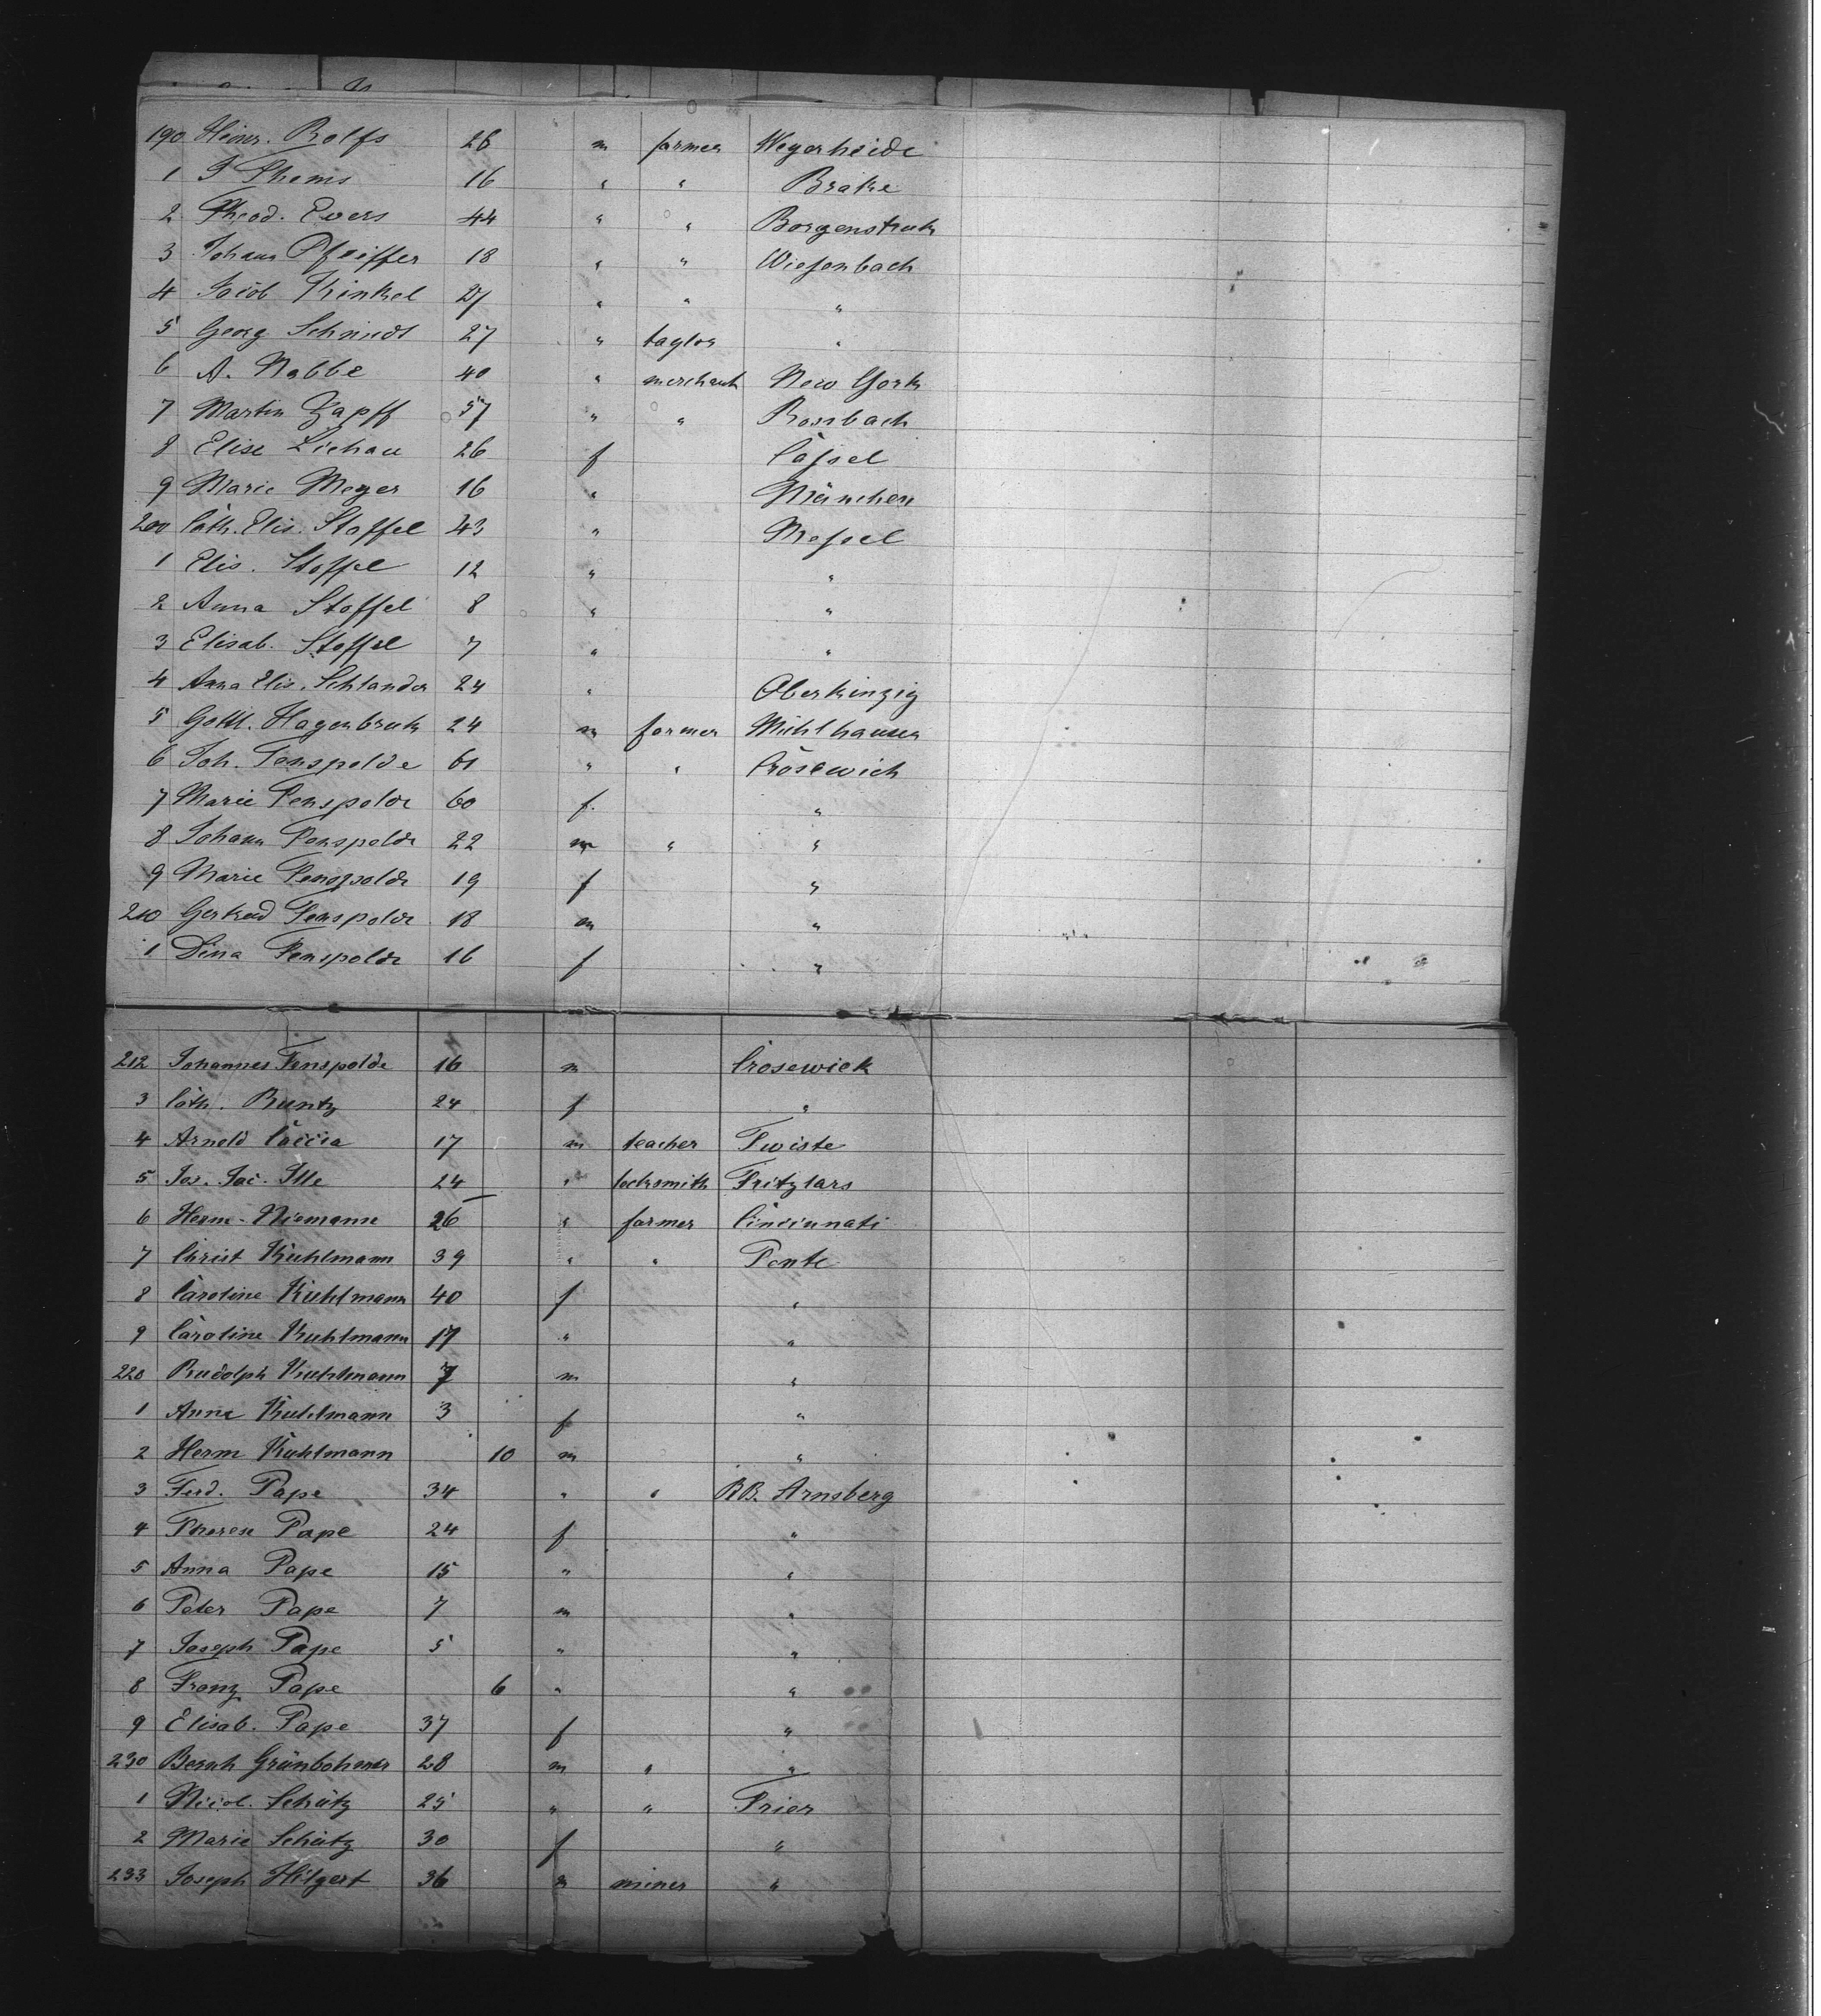 190 Heinr. Rolfs 26 m farmer Wegerheide
1 T Thems 16 " " Brake
2 Theod. Evers 44 " " Borgenstruk
3 Johann Pfeiffer 18 " " Wiesenbach
4 Jacob Kinkel 27 " " "
5 Georg Schmidt 27 " taylor "
6 A. Nabbe 40 " merchant New York
7 Martin Zapff 57 " " Rossbach
8 Elise Lichau 26 f Cassel
9 Marie Meyer 16 " München
200 Cath. Elis. Stoffel 43 " Messel
1 Elis. Stoffel 12 " "
2 Anna Stoffel 8 " "
3 Elisab. Stoffel 7 " "
4 Anna Elis. Schlander 24 " Oberkinzig
5 Gottl. Hagenbruk 24 m farmer Mühlhausen
6 Joh. Tenspolde 61 " " Crosewick
7 Marie Tenspolde 60 f. "
8 Johann Tenspolde 22 m " "
9 Marie Tenspolde 19 f "
210 Gertrud Tenspolde 18 m "
1 Dina Tenspolde 16 f "
212 Johannes Tenspolde 16 m Crosewick
3 Cath. Buntz 24 f "
4 Arnold 17 m teacher Twiste
5 Jos. Jac. Ille 24 " locksmith Fritzlars
6 Herm. Niemann 26 " farmer Cincinnati
7 Christ Kuhlmann 39 " " Pente
8 Caroline Kuhlmann 40 f "
9 Caroline Kuhlmann 17 " "
220 Rudolph Kuhlmann 7 m "
1 Anna Kuhlmann 3 f "
2 Herm Kuhlmann 10 m "
3 Ferd. Pape 34 " " RB. Arnsberg
4 Therese Pape 24 f "
5 Anna Pape 15 " "
6 Peter Pape 7 m "
7 Joseph Pape 5 " "
8 Franz Pape 6 " "
9 Elisab. Pape 37 f "
230 Bernh Grünbohmer 28 m " "
1 Nicol. Schütz 25 " " Trier
2 Marie Schütz 30 f "
233 Joseph Hilgert 36 m miner "